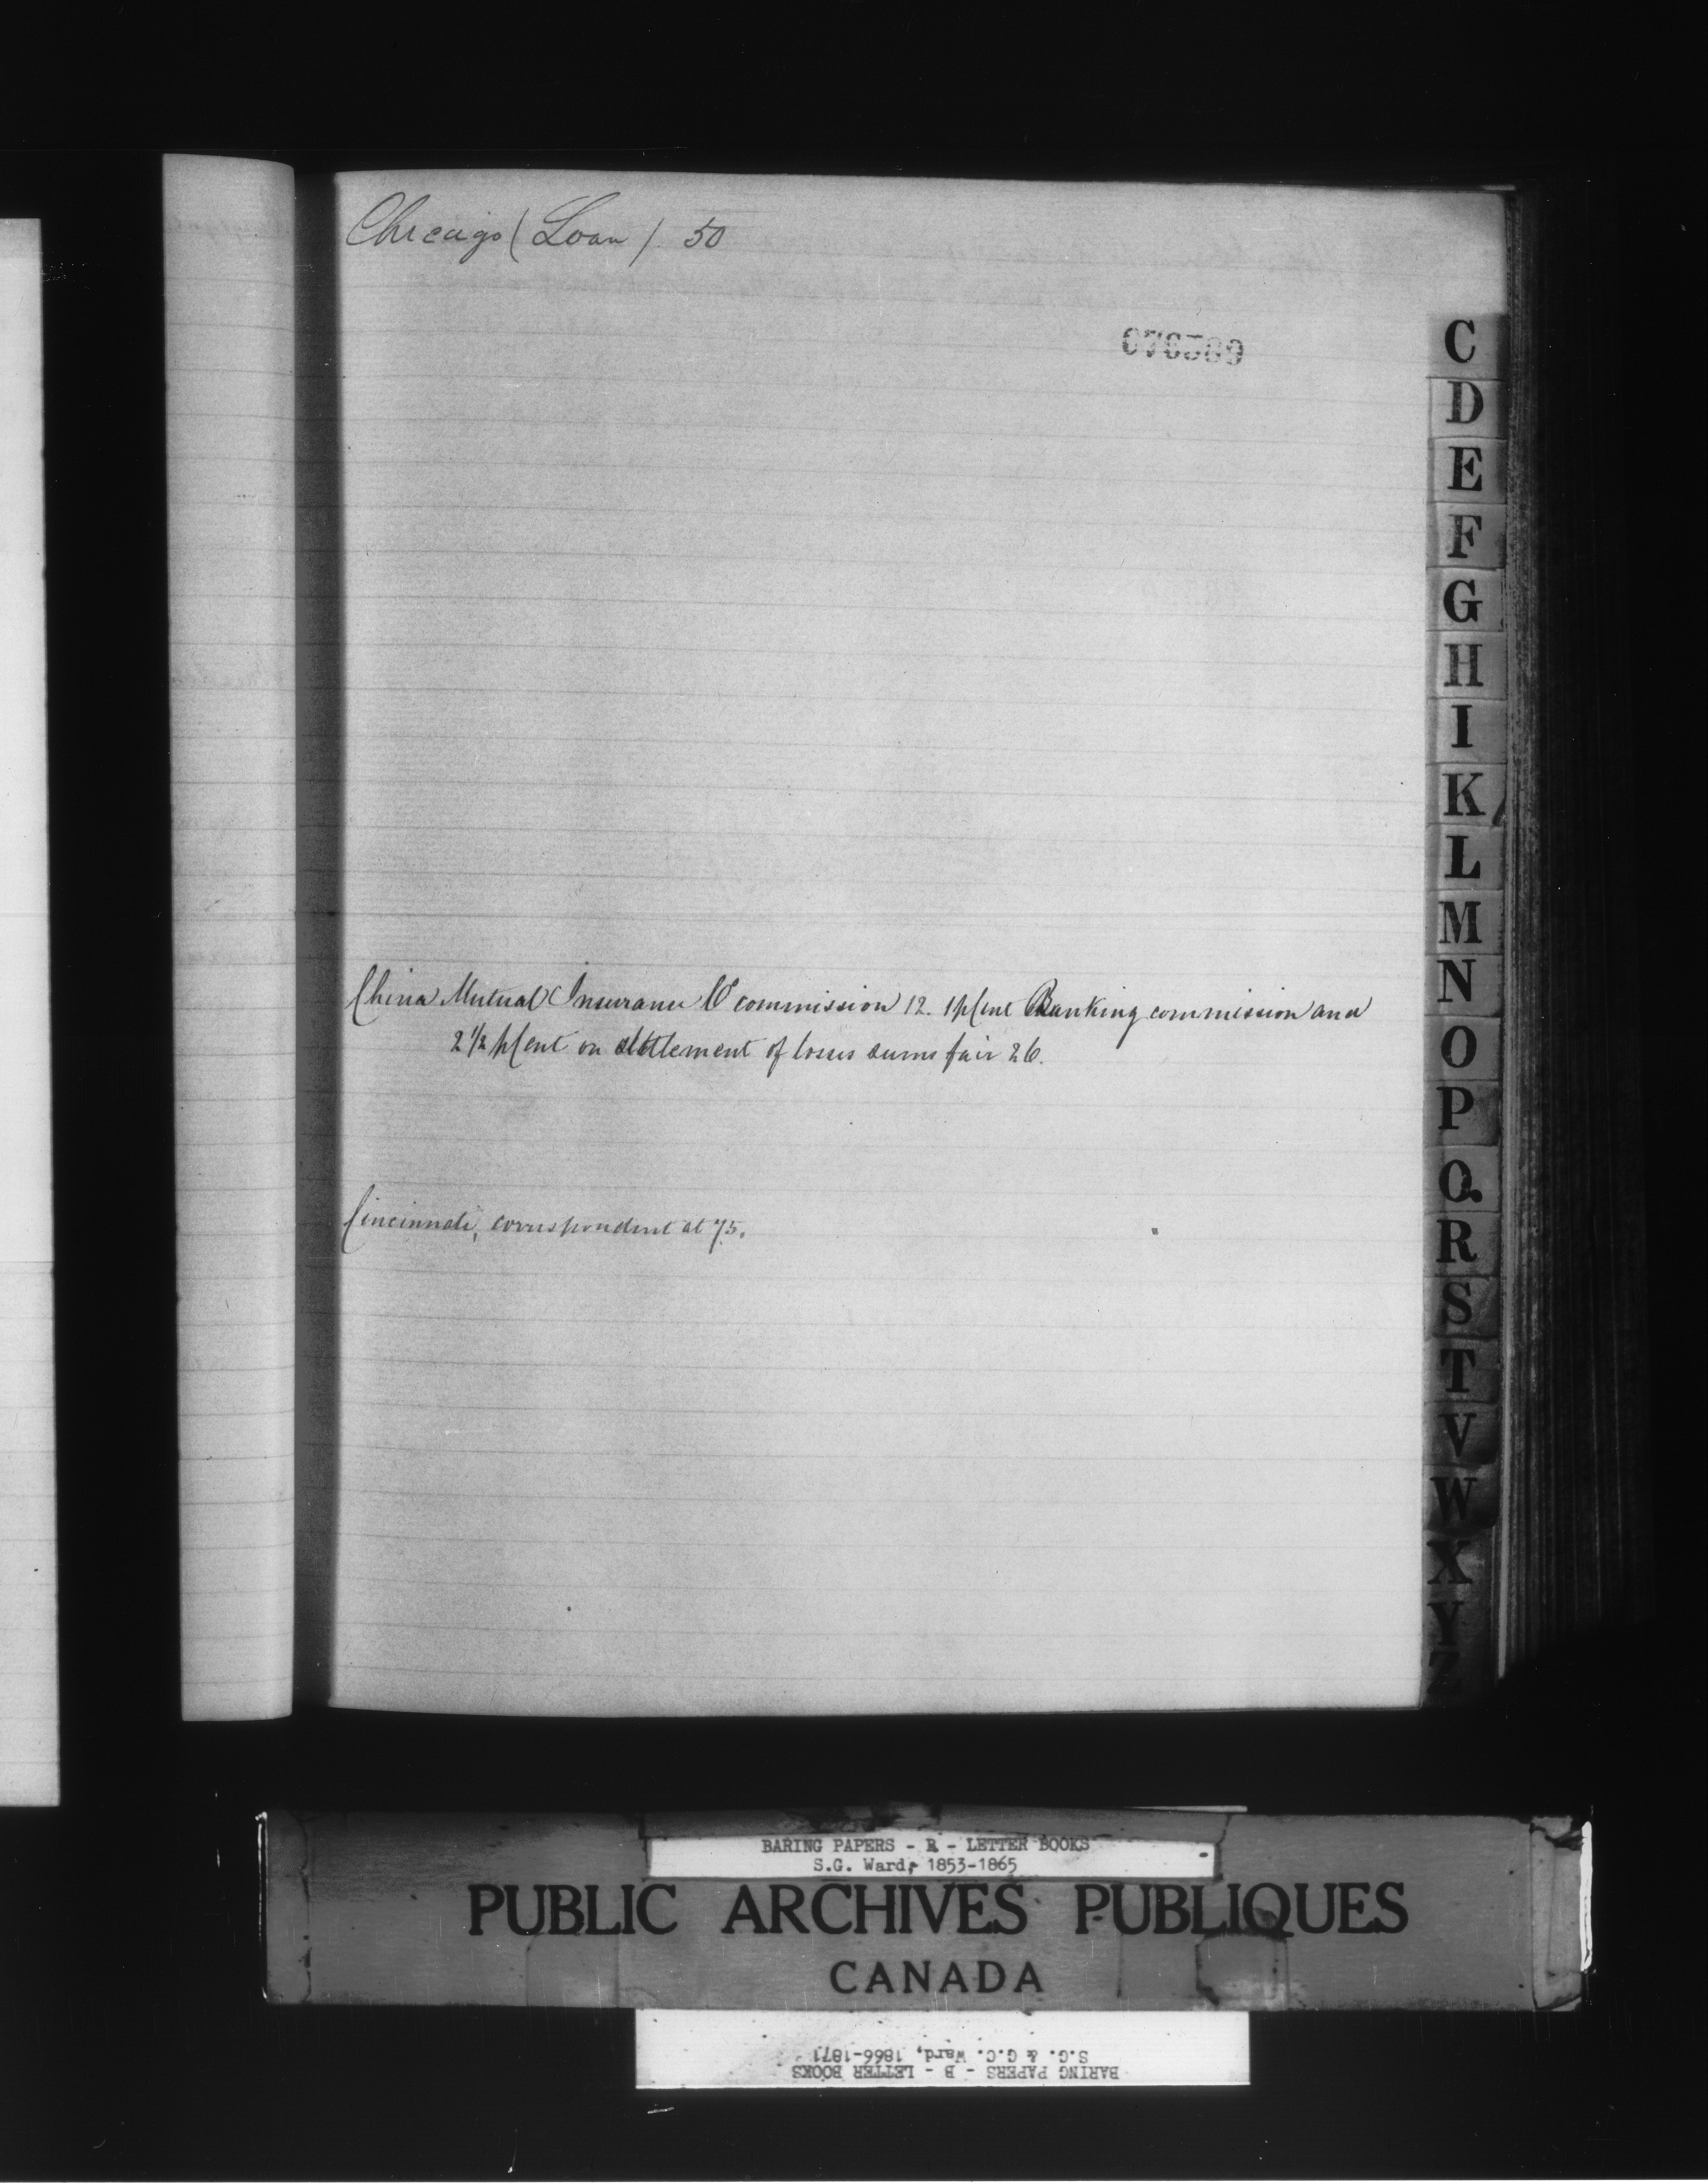 Chicago (Loan) 50
China Mutual Insurance Co commission 12. 1 p Cent Banking commission and
2 1/2 p Cent on settlement of losses seems fair 26.
Cincinnati, correspondent at 75.
C
D
E
F
G
H
I
K
L
M
N
O
P
Q.
R
S
T
V
W
X
Y
Z
BARING PAPERS - B - LETTER BOOKS
S.G. Ward, 1853-1865
PUBLIC ARCHIVES PUBLIQUES
CANADA
BARING PAPERS - B - LETTER BOOKS
S.G. & G.C. Ward, 1866-1871